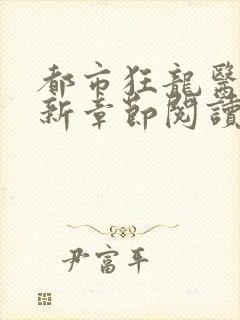 都市狂龍醫
新章節閱讀
尹富平